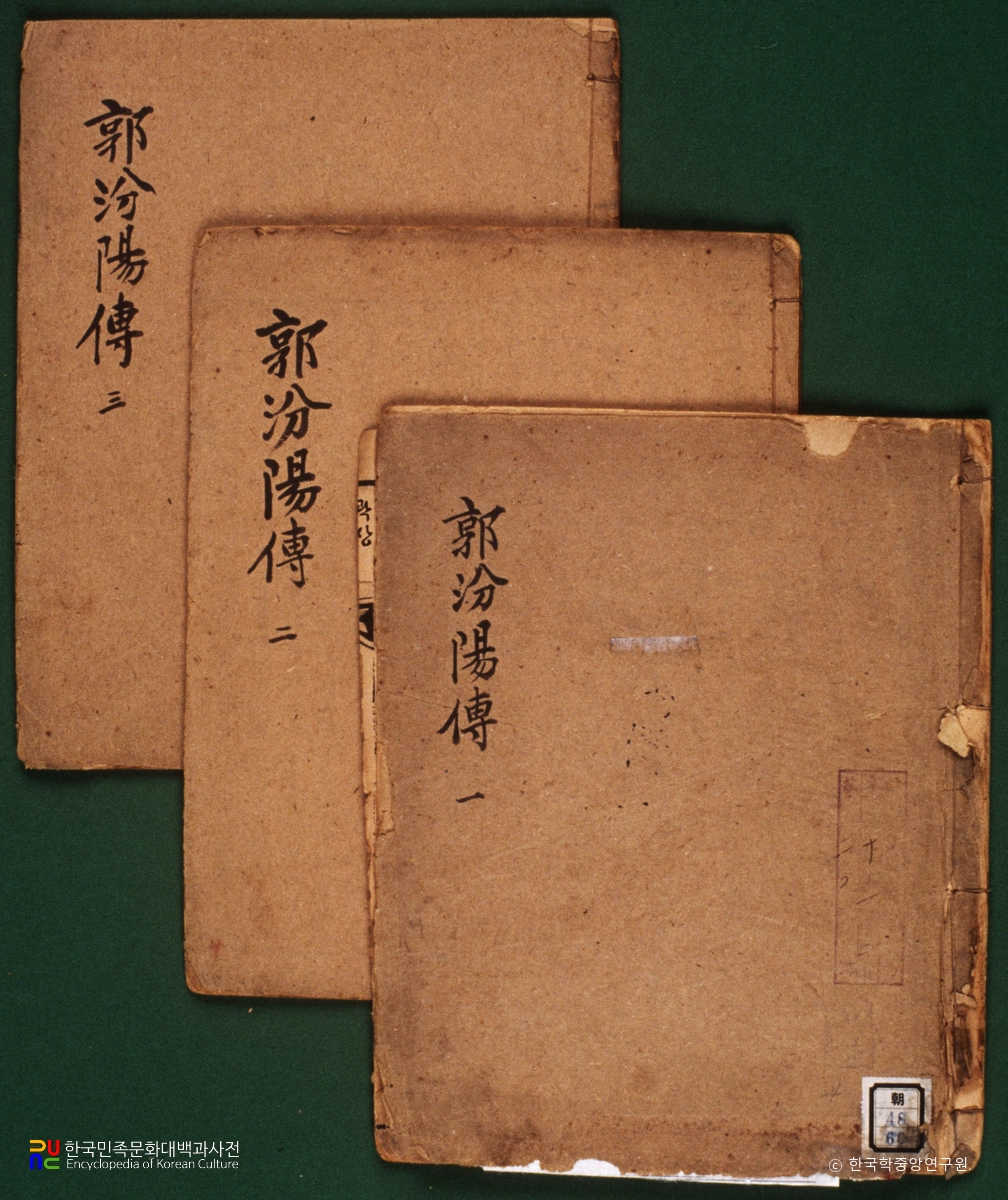 郭汾陽傳
三
郭汾陽傳
二
郭汾陽傳
一
곽상
朝
48
한국민족문화대백과사전
Encyclopedia of Korean Culture
© 한국학중앙연구원